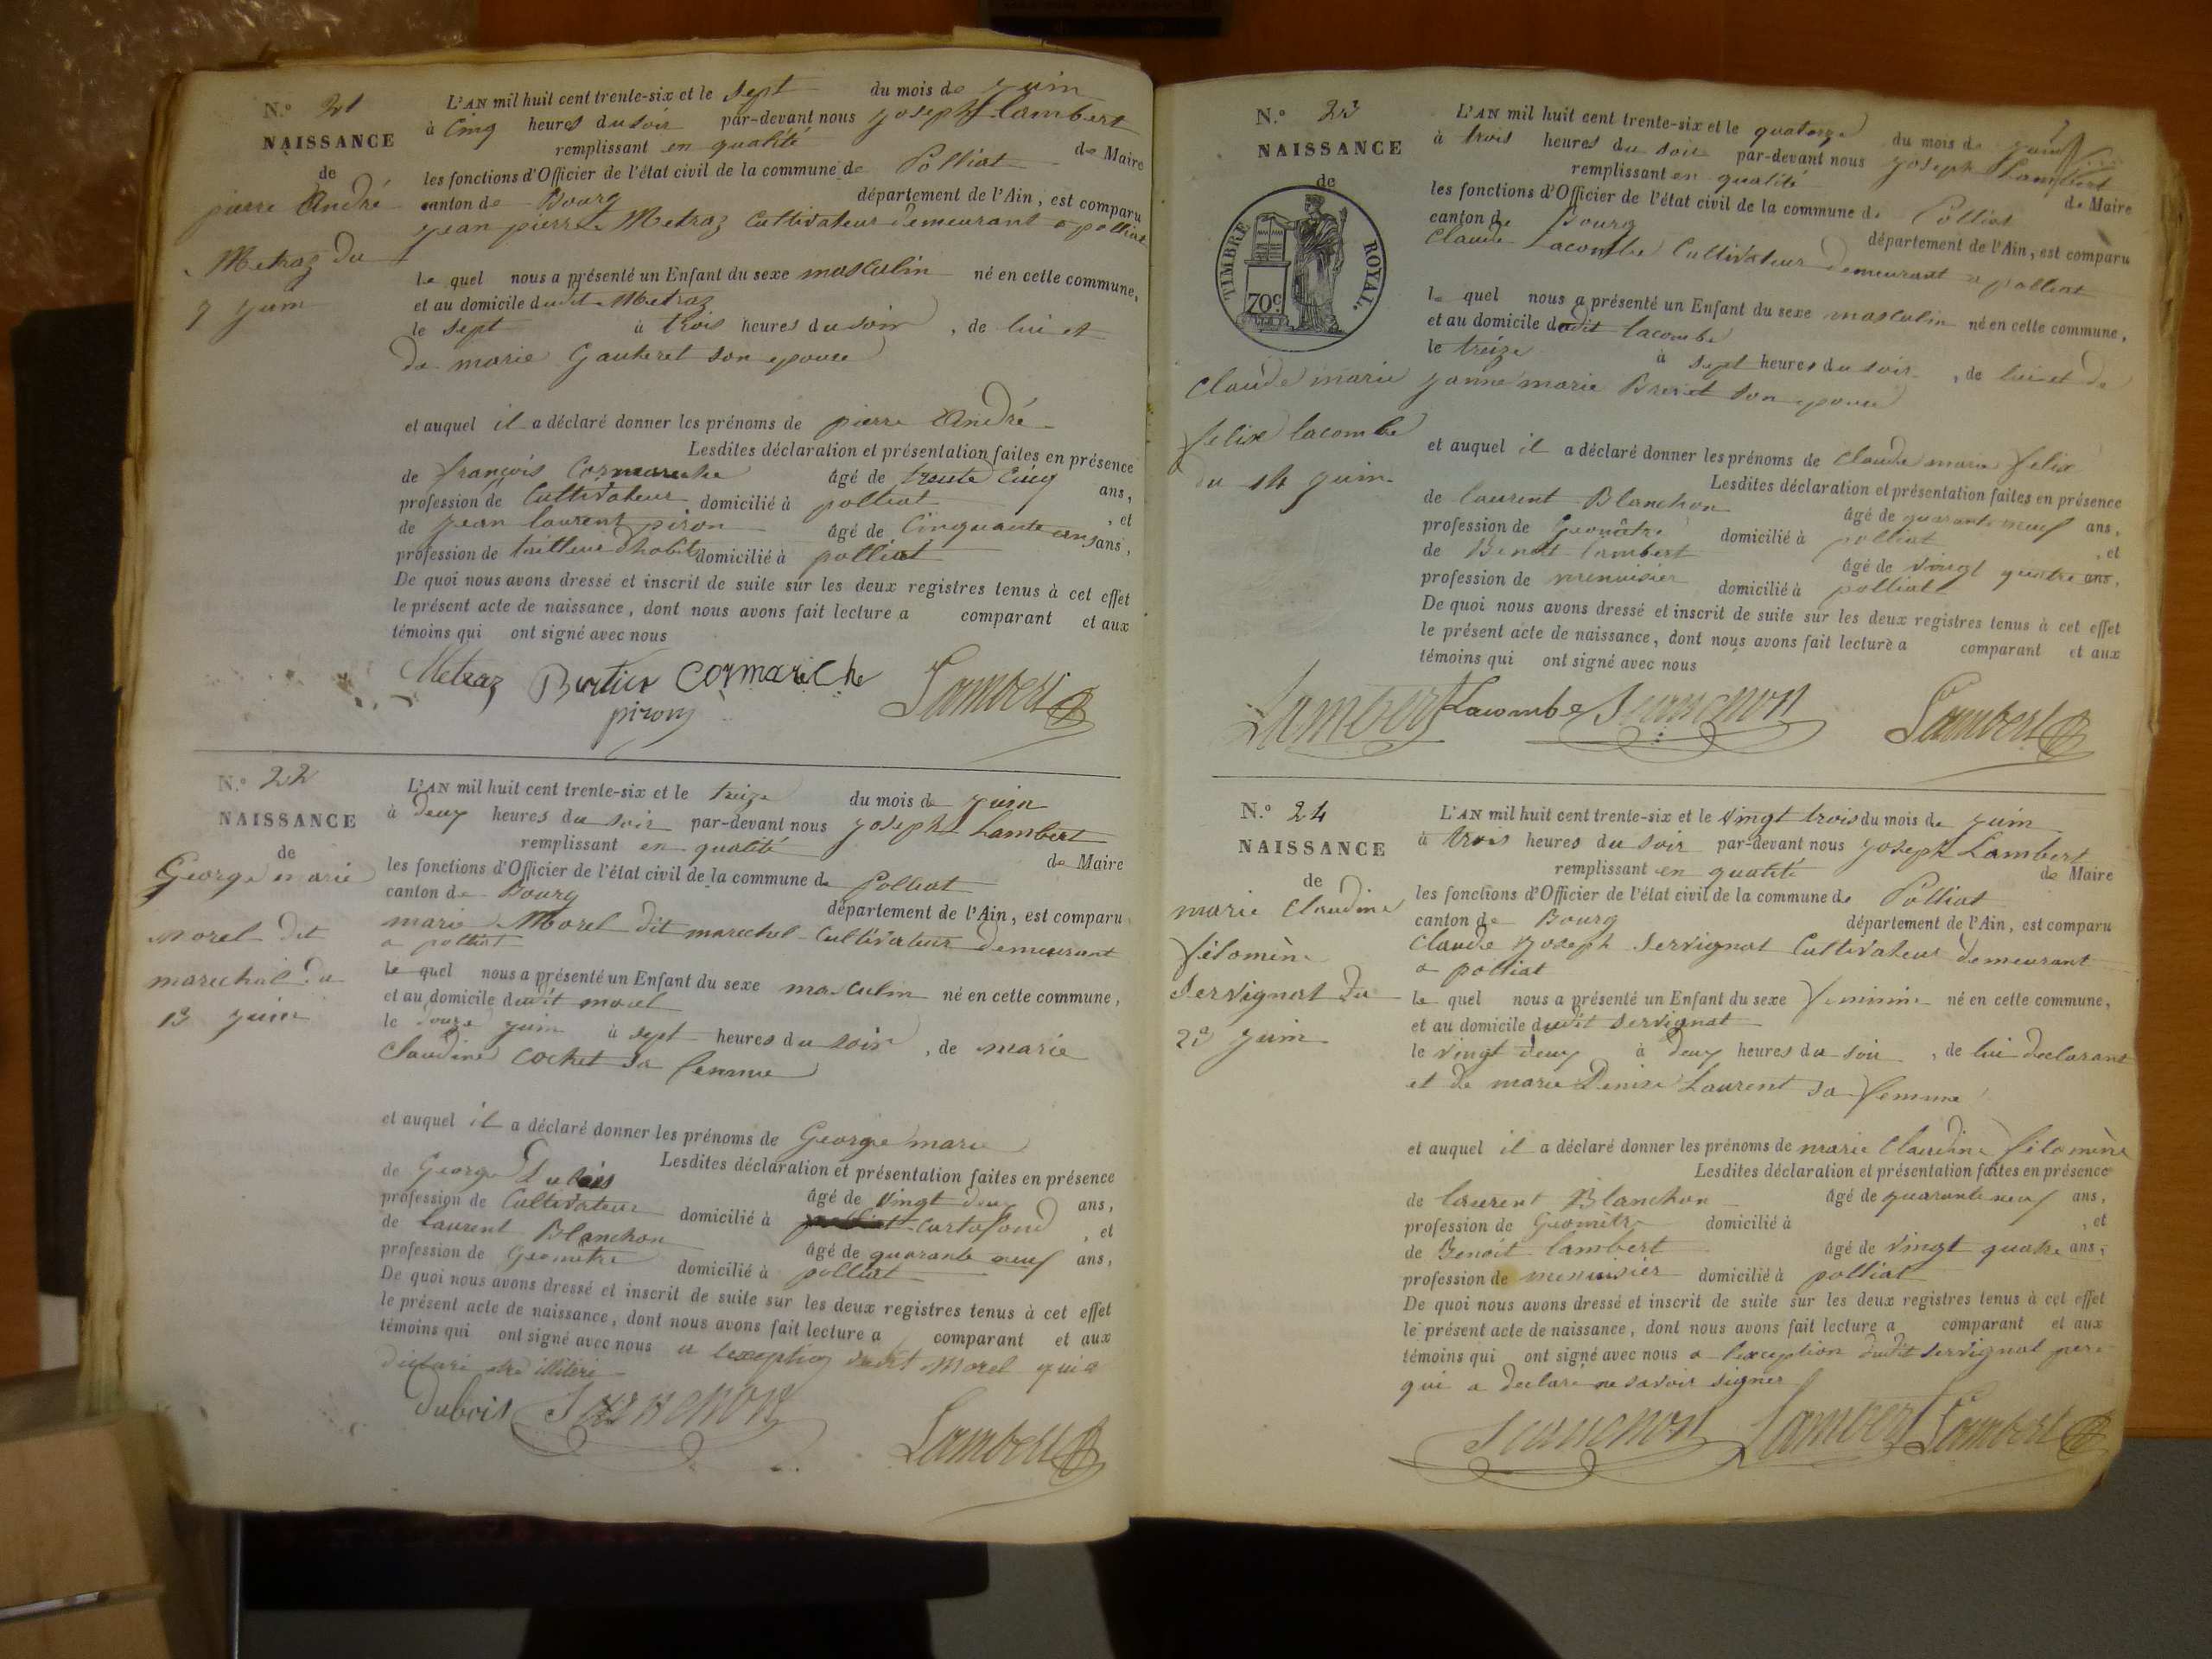 N.° 21
NAISSANCE
de
pierre André
Metraz du
7 juin
L'AN mil huit cent trente-six et le sept du mois de juin
à Cinq heures du soir par-devant nous joseph Lambert
remplissant en qualité de Maire
les fonctions d'Officier de l'état civil de la commune de Polliat
canton de Bourg département de l'Ain, est comparu
jean pierre Metraz Cultivateur demeurant a polliat
le quel nous a présenté un Enfant du sexe masculin né en cette commune,
et au domicile dudit Metraz
le sept à trois heures du soir, de lui et
de marie Gauteret son epouse
et auquel il a déclaré donner les prénoms de pierre André
Lesdites déclaration et présentation faites en présence
de françois Cormareche âgé de trente Cinq ans,
profession de Cultivateur domicilié à polliat, et
de jean laurent piron âgé de Cinquante un ans ans,
profession de tailleur d'habits domicilié à polliat
De quoi nous avons dressé et inscrit de suite sur les deux registres tenus à cet effet
le présent acte de naissance, dont nous avons fait lecture a comparant et aux
témoins qui ont signé avec nous
Metraz Burtier CORMARICHE Lambert
piron
N.° 22
NAISSANCE
de
George marie
morel dit
marechal du
13 juin
L'AN mil huit cent trente-six et le treize du mois de juin
à deux heures du soir par-devant nous joseph Lambert
remplissant en qualité de Maire
les fonctions d'Officier de l'état civil de la commune de Polliat
canton de Bourg département de l'Ain, est comparu
marie Morel dit marechal Cultivateur demeurant
a polliat
le quel nous a présenté un Enfant du sexe masculin né en cette commune,
et au domicile dudit morel
le douze juin à sept heures du soir, de marie
Claudine Cochet sa femme
et auquel il a déclaré donner les prénoms de George marie
Lesdites déclaration et présentation faites en présence
de George Dubois âgé de vingt deux ans,
profession de Cultivateur domicilié à Curtafond, et
de laurent Blanchon âgé de quarante neuf ans,
profession de Geomètre domicilié à polliat
De quoi nous avons dressé et inscrit de suite sur les deux registres tenus à cet effet
le présent acte de naissance, dont nous avons fait lecture a comparant et aux
témoins qui ont signé avec nous a lexception dudit Morel qui a
declaré etre illiteré
dubois Lambert
N.° 23
NAISSANCE
de
TIMBRE ROYAL.
70c
Claude marie
felix lacombe
du 14 juin
L'AN mil huit cent trente-six et le quatorze du mois de juin
à trois heures du soir par-devant nous joseph Lambert
remplissant en qualité de Maire
les fonctions d'Officier de l'état civil de la commune de Polliat
canton de Bourg département de l'Ain, est comparu
Claude Lacombe Cultivateur demeurant a polliat
le quel nous a présenté un Enfant du sexe masculin né en cette commune,
et au domicile dudit lacombe
le treize à sept heures du soir, de lui et de
janne marie Brevet son epouse
et auquel il a déclaré donner les prénoms de Claude marie felix
Lesdites déclaration et présentation faites en présence
de laurent Blanchon âgé de quarante neuf ans,
profession de Geomètre domicilié à polliat, et
de Benoit lambert âgé de vingt quatre ans,
profession de menuisier domicilié à polliat
De quoi nous avons dressé et inscrit de suite sur les deux registres tenus à cet effet
le présent acte de naissance, dont nous avons fait lecture a comparant et aux
témoins qui ont signé avec nous
Lambert Lacombe Lambert
N.° 24
NAISSANCE
de
marie Claudine
filomène
Servignat du
23 juin
L'AN mil huit cent trente-six et le vingt trois du mois de juin
à trois heures du soir par-devant nous joseph Lambert
remplissant en qualité de Maire
les fonctions d'Officier de l'état civil de la commune de Polliat
canton de Bourg département de l'Ain, est comparu
Claude joseph Servignat Cultivateur demeurant
a polliat
le quel nous a présenté un Enfant du sexe feminin né en cette commune,
et au domicile dudit servignat
le vingt deux à deux heures du soir, de lui declarant
et de marie Denise Laurent sa femme
et auquel il a déclaré donner les prénoms de marie Claudine filomène
Lesdites déclaration et présentation faites en présence
de laurent Blanchon âgé de quarante neuf ans,
profession de Geomètre domicilié à, et
de Benoit lambert âgé de vingt quatre ans,
profession de menuisier domicilié à polliat
De quoi nous avons dressé et inscrit de suite sur les deux registres tenus à cet effet
le présent acte de naissance, dont nous avons fait lecture a comparant et aux
témoins qui ont signé avec nous a lexception dudit servignat pere
qui a declaré ne savoir signer
Lambert Lambert